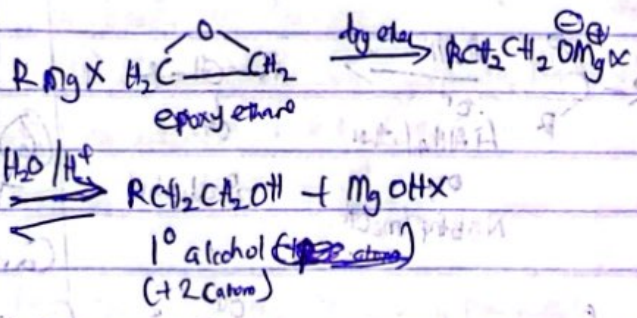 O
R Mg X H₂C CH₂ dry ether RCH₂CH₂ O⊖Mg⊕X
epoxy ethane
H₂O / H⁺ RCH₂CH₂OH + Mg OHX
1° alcohol
(+ 2 C atom)